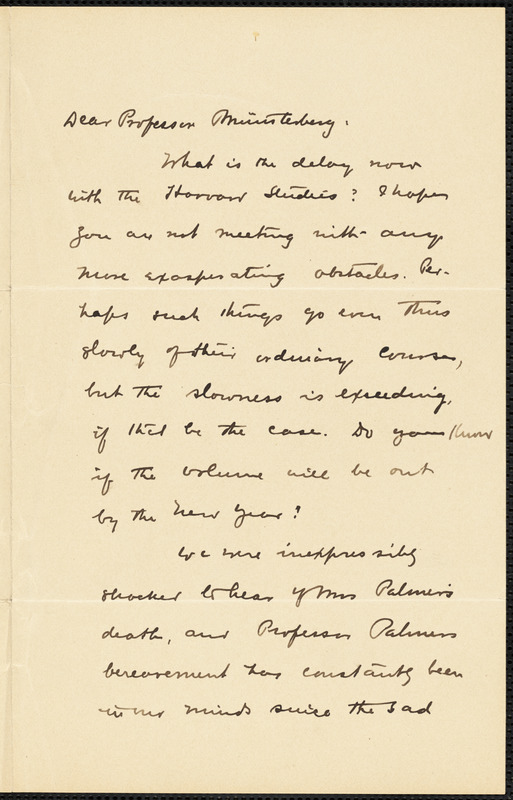 Dear Professor Münsterberg:
What is the delay now
with the Harvard Studies? I hope
you are not meeting with any
more exasperating obstacles. Per-
haps such things go even thus
slowly of their ordinary course,
but the slowness is exceeding,
if that be the case. Do you know
if the volume will be out
by the New Year?
We were inexpressibly
shocked to hear of Mrs Palmer's
death, and Professor Palmers
bereavement has constantly been
in our minds since the sad